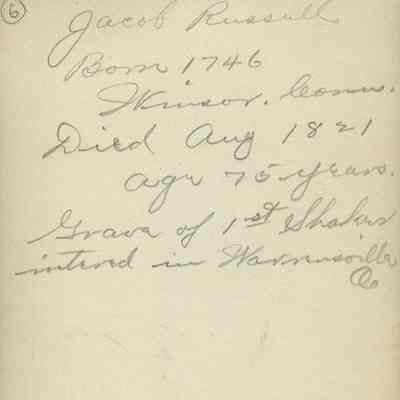 6
Jacob Russell
Born 1746
Winsor. Conn.
Died Aug 1821
age 75 years.
Grave of 1st Shaker
intered in Warrensville
O